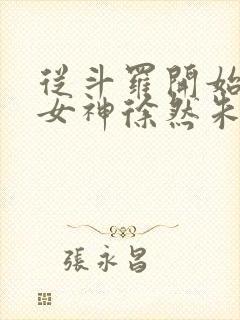 從斗羅開始
女神徐然朱
張永昌